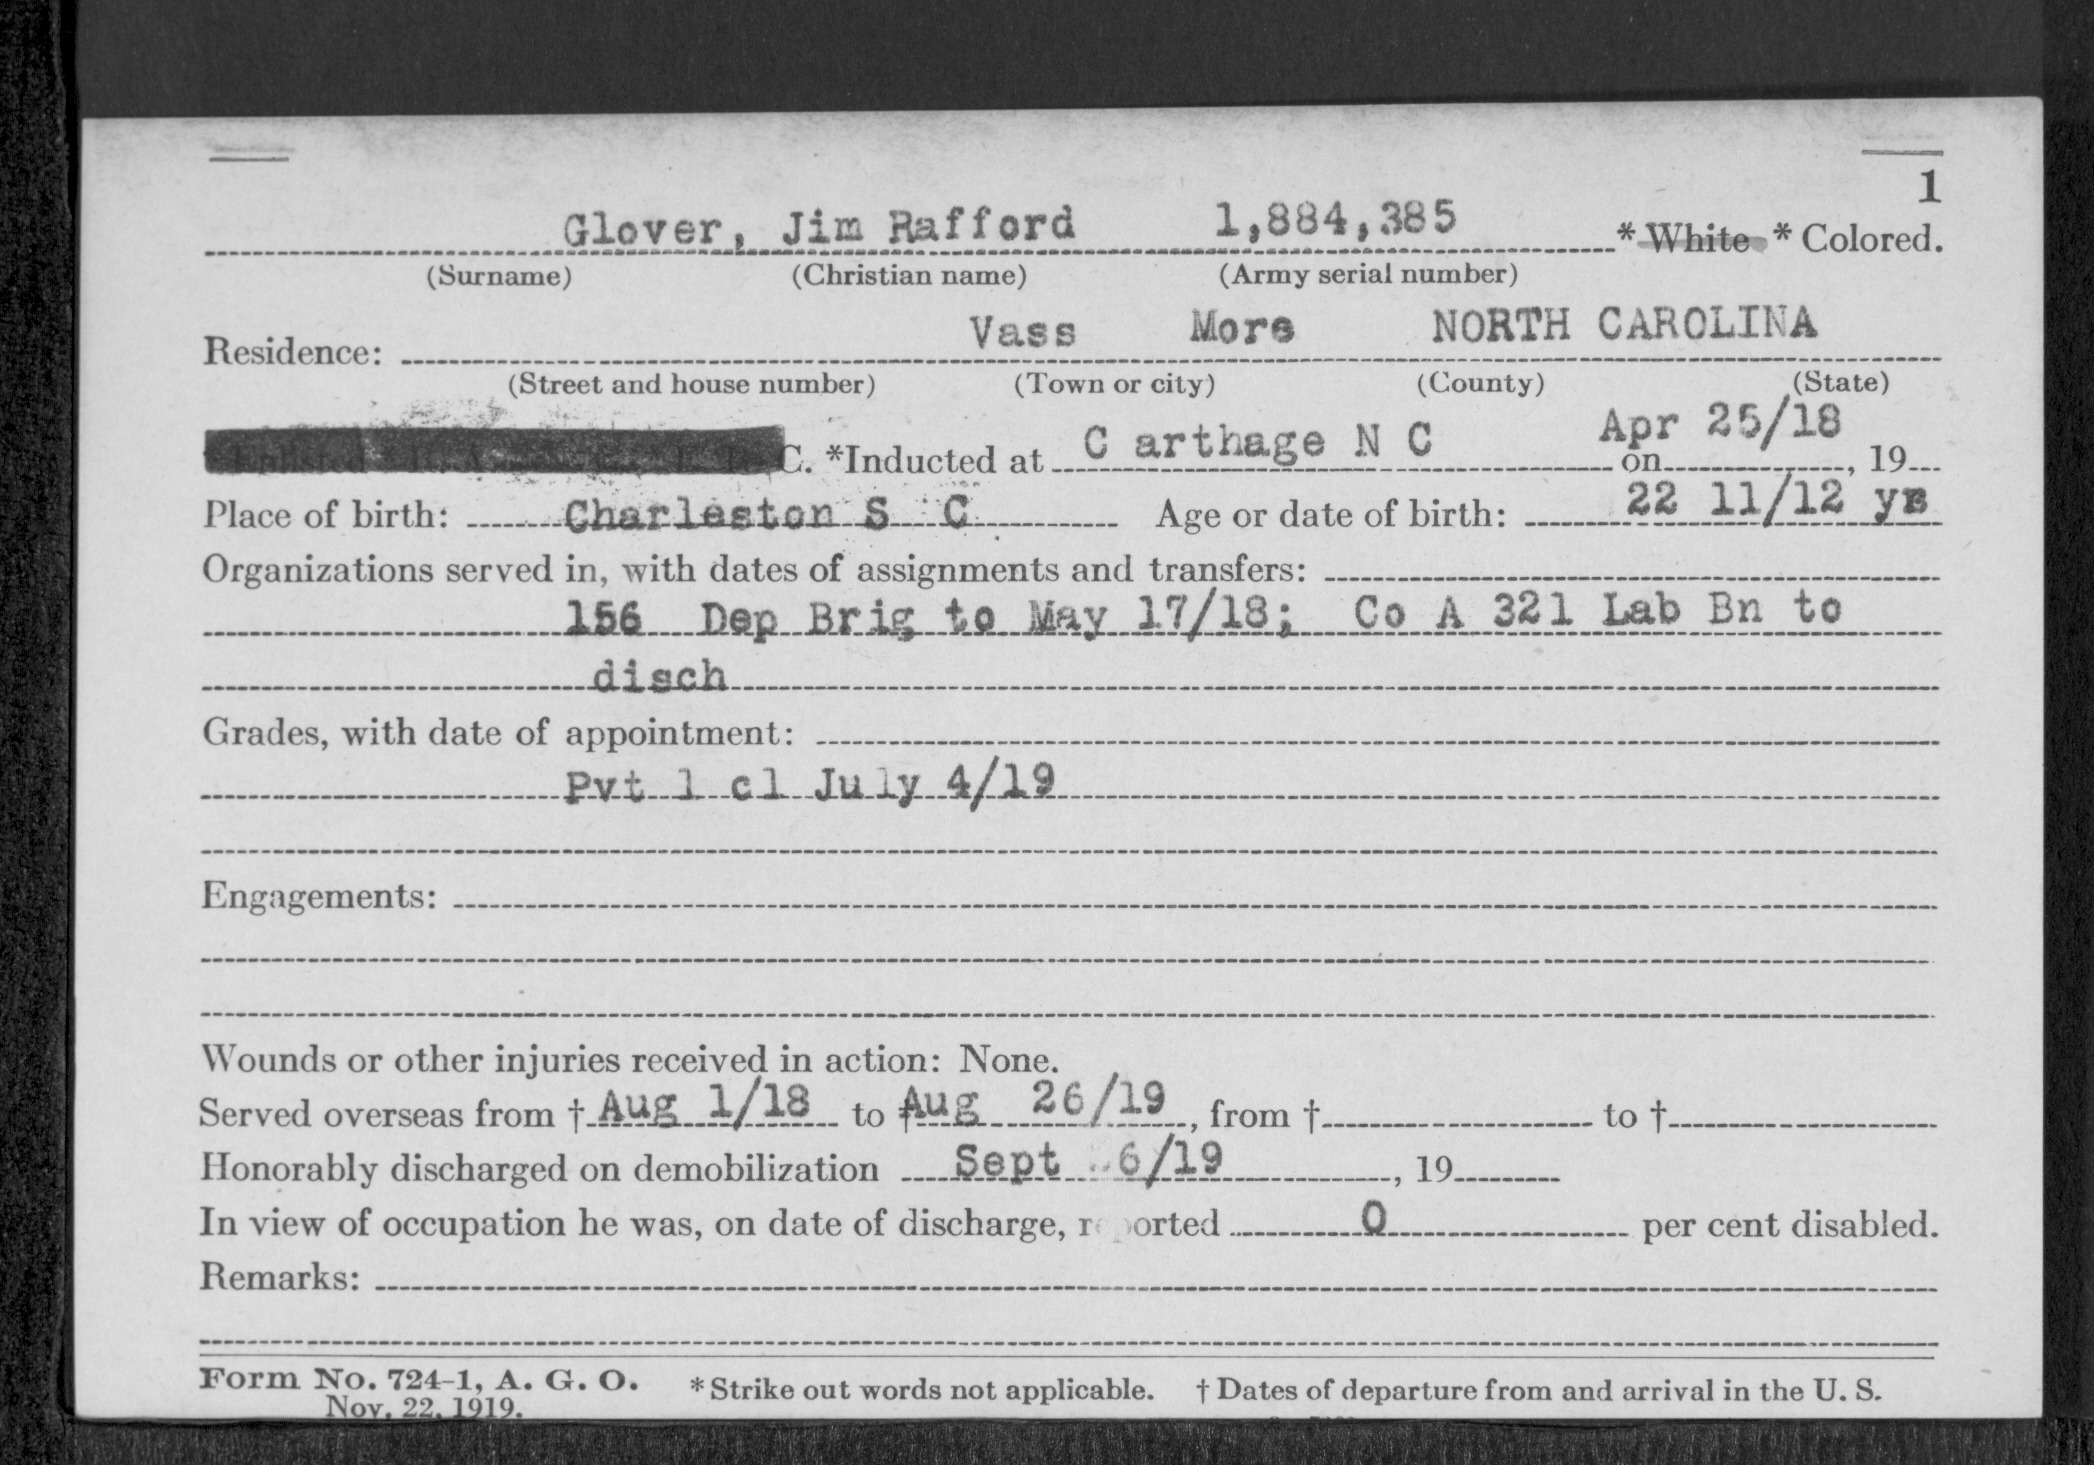 1
Glover, Jim Rafford 1,884,385 * White * Colored.
(Surname) (Christian name) (Army serial number)
Vass More NORTH CAROLINA
Residence:
(Street and house number) (Town or city) (County) (State)
C. *Inducted at C arthage N C on Apr 25/18, 19
Place of birth: Charleston S C Age or date of birth: 22 11/12 yrs
Organizations served in, with dates of assignments and transfers:
156 Dep Brig to May 17/18; Co A 321 Lab Bn to
disch
Grades, with date of appointment:
Pvt 1 cl July 4/19
Engagements:
Wounds or other injuries received in action: None.
Served overseas from † Aug 1/18 to † Aug 26/19, from † to †
Honorably discharged on demobilization Sept 6/19, 19
In view of occupation he was, on date of discharge, reported 0 per cent disabled.
Remarks:
Form No. 724-1, A. G. O. * Strike out words not applicable. † Dates of departure from and arrival in the U. S.
Nov. 22, 1919.